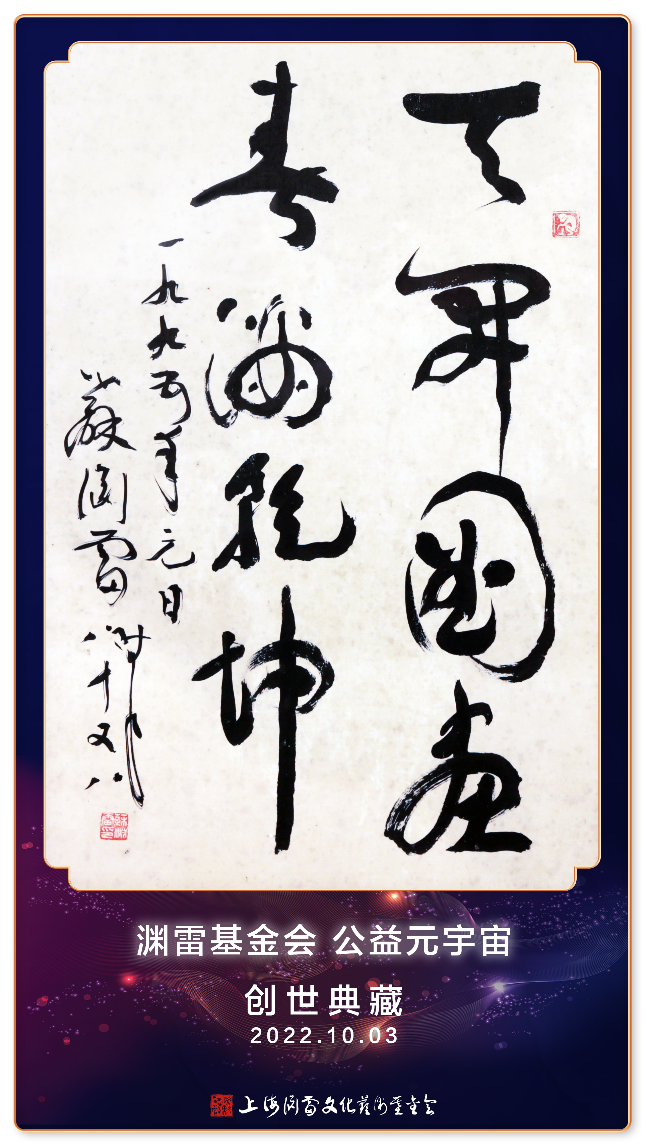 天開圖畫
春滿乾坤
一九九五年元日
蘇淵雷時年八十又八
渊雷基金会 公益元宇宙
创世典藏
2022.10.03
上海淵雷文化藝術基金会